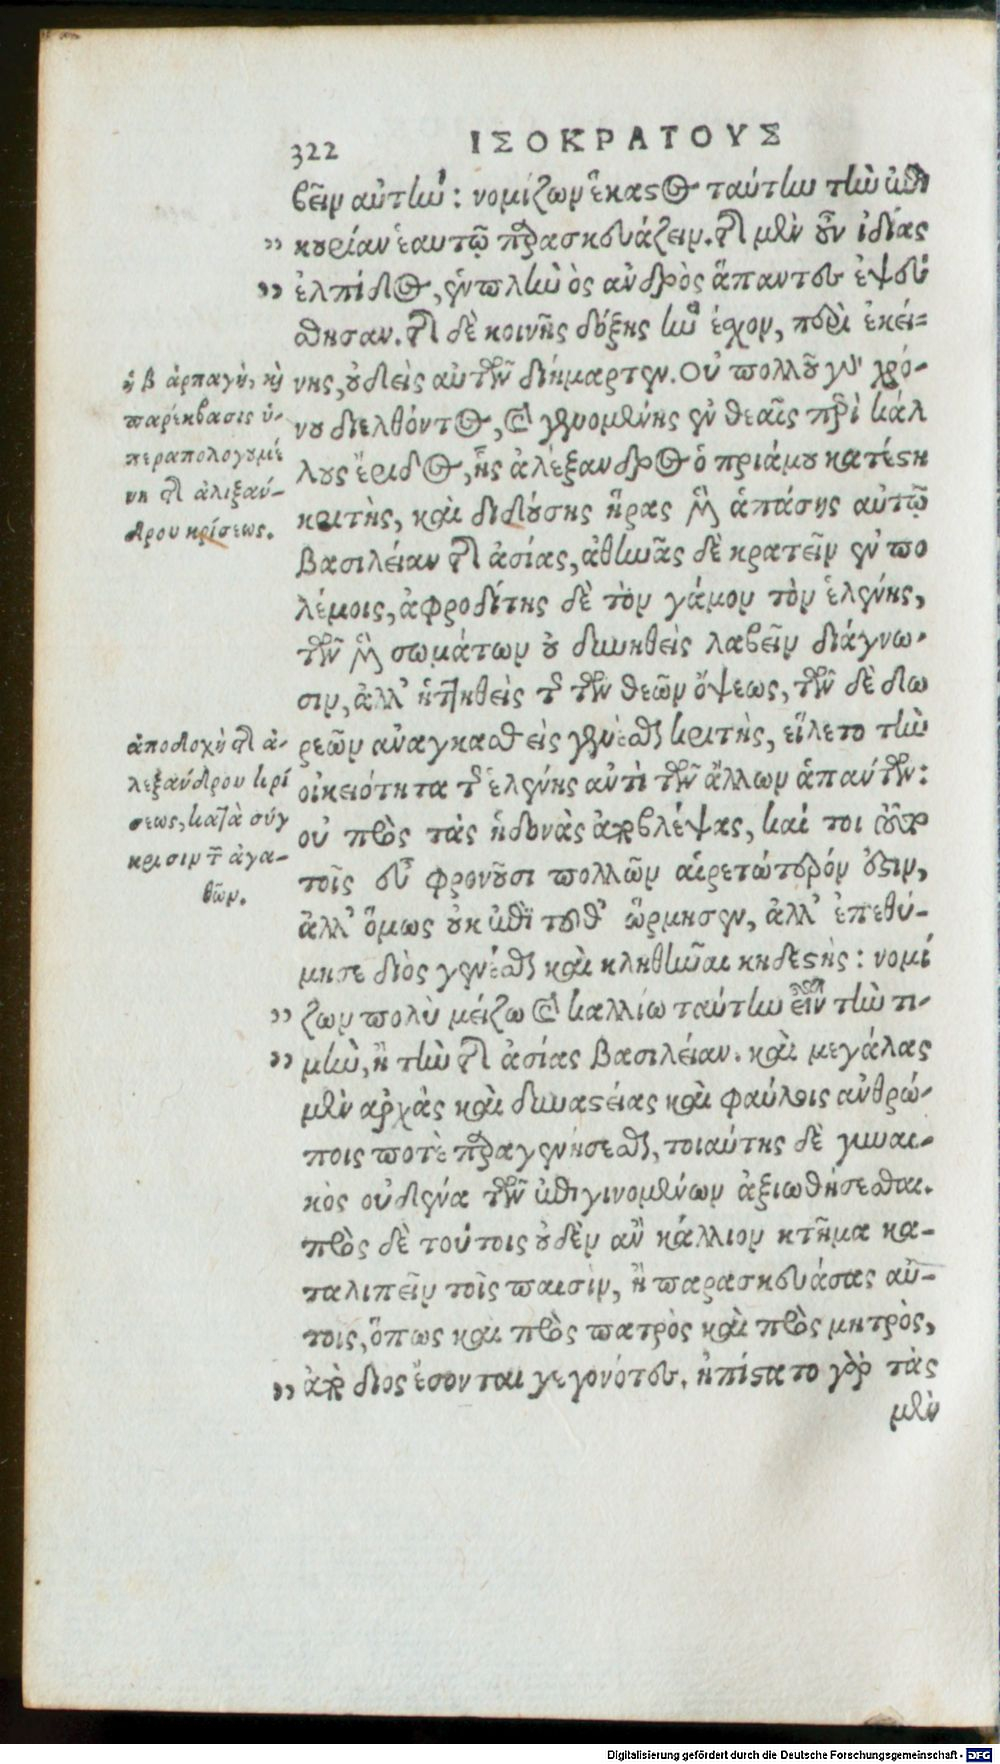 322 ΙΣΟΚΡΑΤΟΥΣ
βεῖν αὐτὴν: νομίζων ἕκαστος ταύτην τὴν ἐπι
" κουρίαν ἑαυτῷ παρασκευάζειν. τῆς μὲν οὖν ἰδίας
" ἐλπίδος, ἐν πλὴν ὸς ἀνδρὸς ἅπαντες ἐψεύ
σθησαν. τῆς δὲ κοινῆς δόξης ἣν ἔσχον, περὶ ἐκεί=
νης, οὐδεὶς αὐτῶν διήμαρτεν. Οὐ πολλοῦ γὰρ χρό-
νου διελθόντος, καὶ γενομένης ἐν θεαῖς περὶ κάλ
λους ἔριδος, ἧς ἀλέξανδρος ὁ πριάμου κατέστη
κριτὴς, καὶ διδούσης ἥρας μὲν ἁπάσης αὐτῷ
βασιλείαν τῆς ἀσίας, ἀθηνᾶς δὲ κρατεῖν ἐν πο
λέμοις, ἀφροδίτης δὲ τὸν γάμον τὸν ἑλένης,
τῶν μὲν σωμάτων οὐ δυνηθεὶς λαβεῖν διάγνω-
σιν, ἀλλ' ἡττηθεὶς τῆς τῶν θεῶν ὄψεως, τῶν δὲ δω
ρεῶν ἀναγκασθεὶς γενέσθαι κριτὴς, εἵλετο τὴν
οἰκειότητα τῆς ἑλένης ἀντὶ τῶν ἄλλων ἁπάντων:
οὐ πρὸς τὰς ἡδονὰς ἀποβλέψας, καί τοι καὶ τοῦτο
τοῖς εὖ φρονοῦσι πολλῶν αἱρετώτερόν ἐστιν,
ἀλλ' ὅμως οὐκ ἐπὶ τοῦθ' ὥρμησεν, ἀλλ' ἐπεθύ-
μησε διὸς γενέσθαι καὶ κληθῆναι κηδεστὴς: νομί
" ζων πολὺ μείζω καὶ καλλίω ταύτην εἶναι τὴν τι-
" μὴν, ἢ τὴν τῆς ἀσίας βασιλείαν. καὶ μεγάλας
μὲν ἀρχὰς καὶ δυναστείας καὶ φαύλοις ἀνθρώ-
ποις ποτὲ παραγενήσεσθαι, τοιαύτης δὲ γυναι-
κὸς οὐδένα τῶν ἐπιγινομένων ἀξιωθήσεσθαι.
πρὸς δὲ τούτοις οὐδὲν ἂν κάλλιον κτῆμα κα-
ταλιπεῖν τοῖς παισὶν, ἢ παρασκευάσας αὐ-
τοις, ὅπως καὶ πρὸς πατρὸς καὶ πρὸς μητρὸς,
" ἀπὸ διος ἔσονται γεγονότες. ἠπίστατο γὰρ τὰς
μὲν
ἡ β ἁρπαγὴ, καὶ
παρέκβασις ὑ-
περαπολογουμέ
νη τῆς ἀλεξάν-
δρου κρίσεως.
ἀποδοχὴ τῆς ἀ-
λεξάνδρου κρί
σεως, κατὰ σύγ
κρισιν τῶν ἀγα-
θῶν.
Digitalisierung gefördert durch die Deutsche Forschungsgemeinschaft - DFG